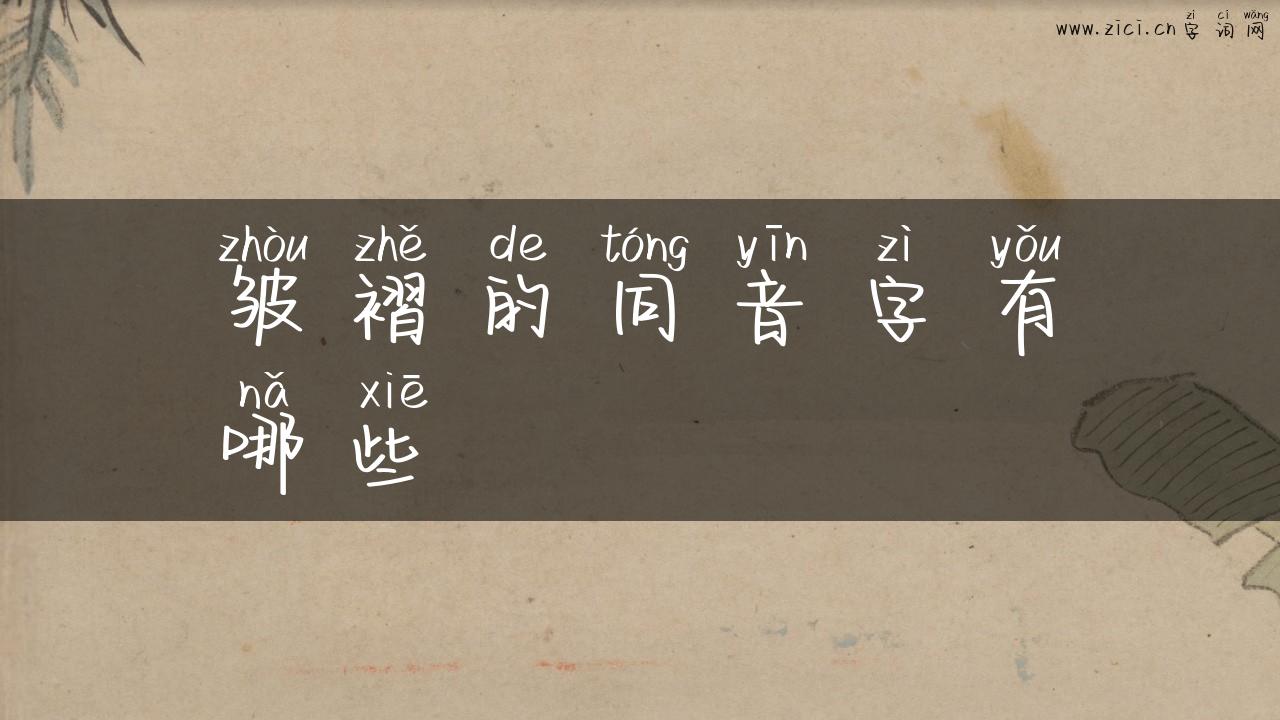 zì cí wǎng
www.zici.cn 字词网
zhòu zhě de tóng yīn zì yǒu
皱褶的同音字有
nǎ xiē
哪些